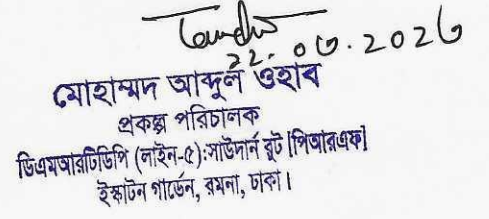 22.06.2026
মোহাম্মদ আব্দুল ওহাব
প্রকল্প পরিচালক
ডিএমআরটিডিপি (লাইন-৫):সাউদার্ন রুট [পিআরএফ]
ইস্কাটন গার্ডেন, রমনা, ঢাকা।